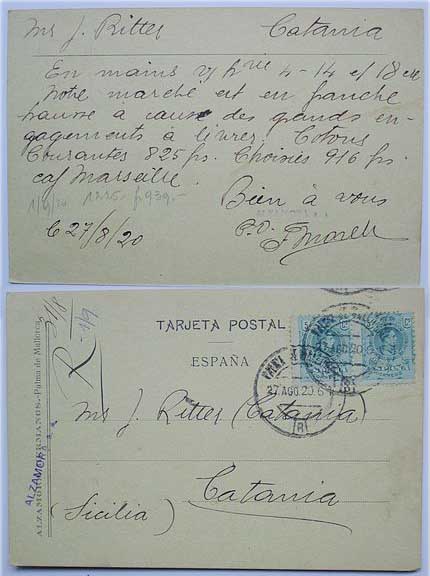 Ms J. Ritter Catania
En mains v/ hrée 4-14 et 18 crt
Notre marché est en franche
hausse à cause des grands en-
gagements à livrer. Cotons
Courantes 825 frs. Choisies 916 frs.
caf Marseille.
1/9/20 1225- f 939.-
Bien à vous
C 27/8/20
p.p.
TARJETA POSTAL
ESPAÑA
ALZAMORA HERMANOS.-Palma de Mallorca
ALZAMORA
R
31/8
1/9
27 AGO 20.6
(B)
AGO 20
Ms J. Ritter (Catania)
Catania
(Sicilia)